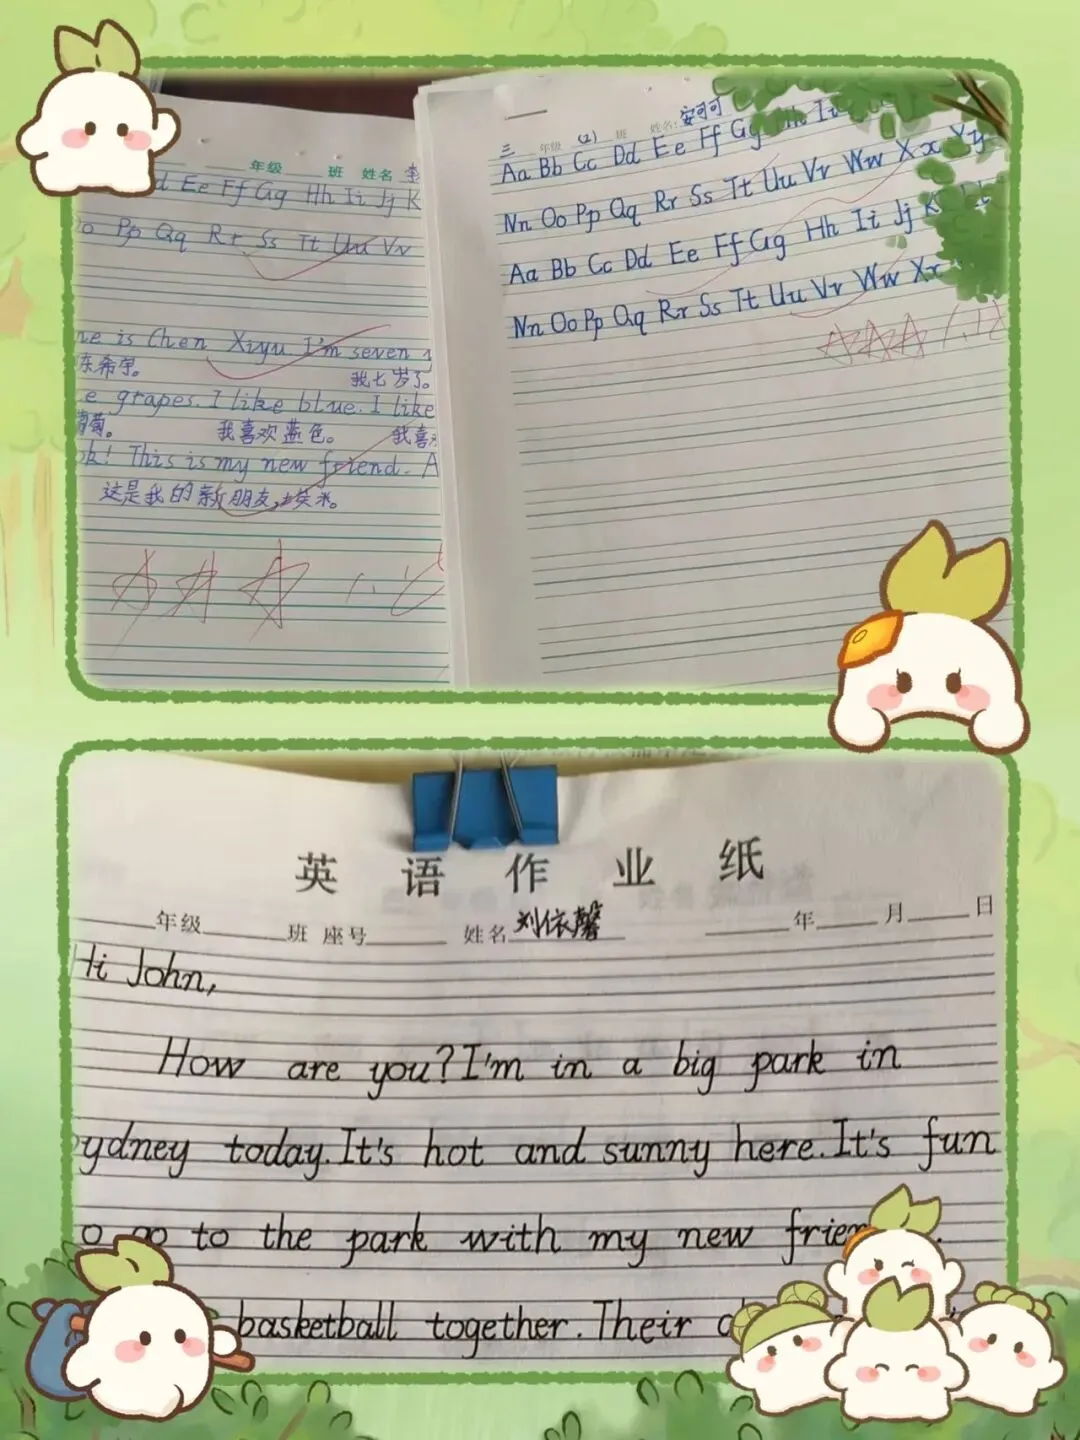 年级 班 姓名 李
d Ee Ff Gg Hh Ii Jj K
o Pp Qq Rr Ss Tt Uu Vv
me is Chen Xiyu I'm seven
陈希宇。 我七岁了。
e grapes. I like blue. I like
葡萄。 我喜欢蓝色。 我喜
ok! This is my new friend. A
这是我的新朋友,埃米。
三 年级 (2) 班 姓名: 安可可
Aa Bb Cc Dd Ee Ff Gg Hh Ii
Nn Oo Pp Qq Rr Ss Tt Uu Vv Ww Xx Yy
Aa Bb Cc Dd Ee Ff Gg Hh Ii Jj K
Nn Oo Pp Qq Rr Ss Tt Uu Vv Ww Xx
英语作业纸
年级 班 座号 姓名 刘依馨 年 月 日
Hi John,
How are you? I'm in a big park in
ydney today. It's hot and sunny here. It's fun
o go to the park with my new frien
basketball together. Their